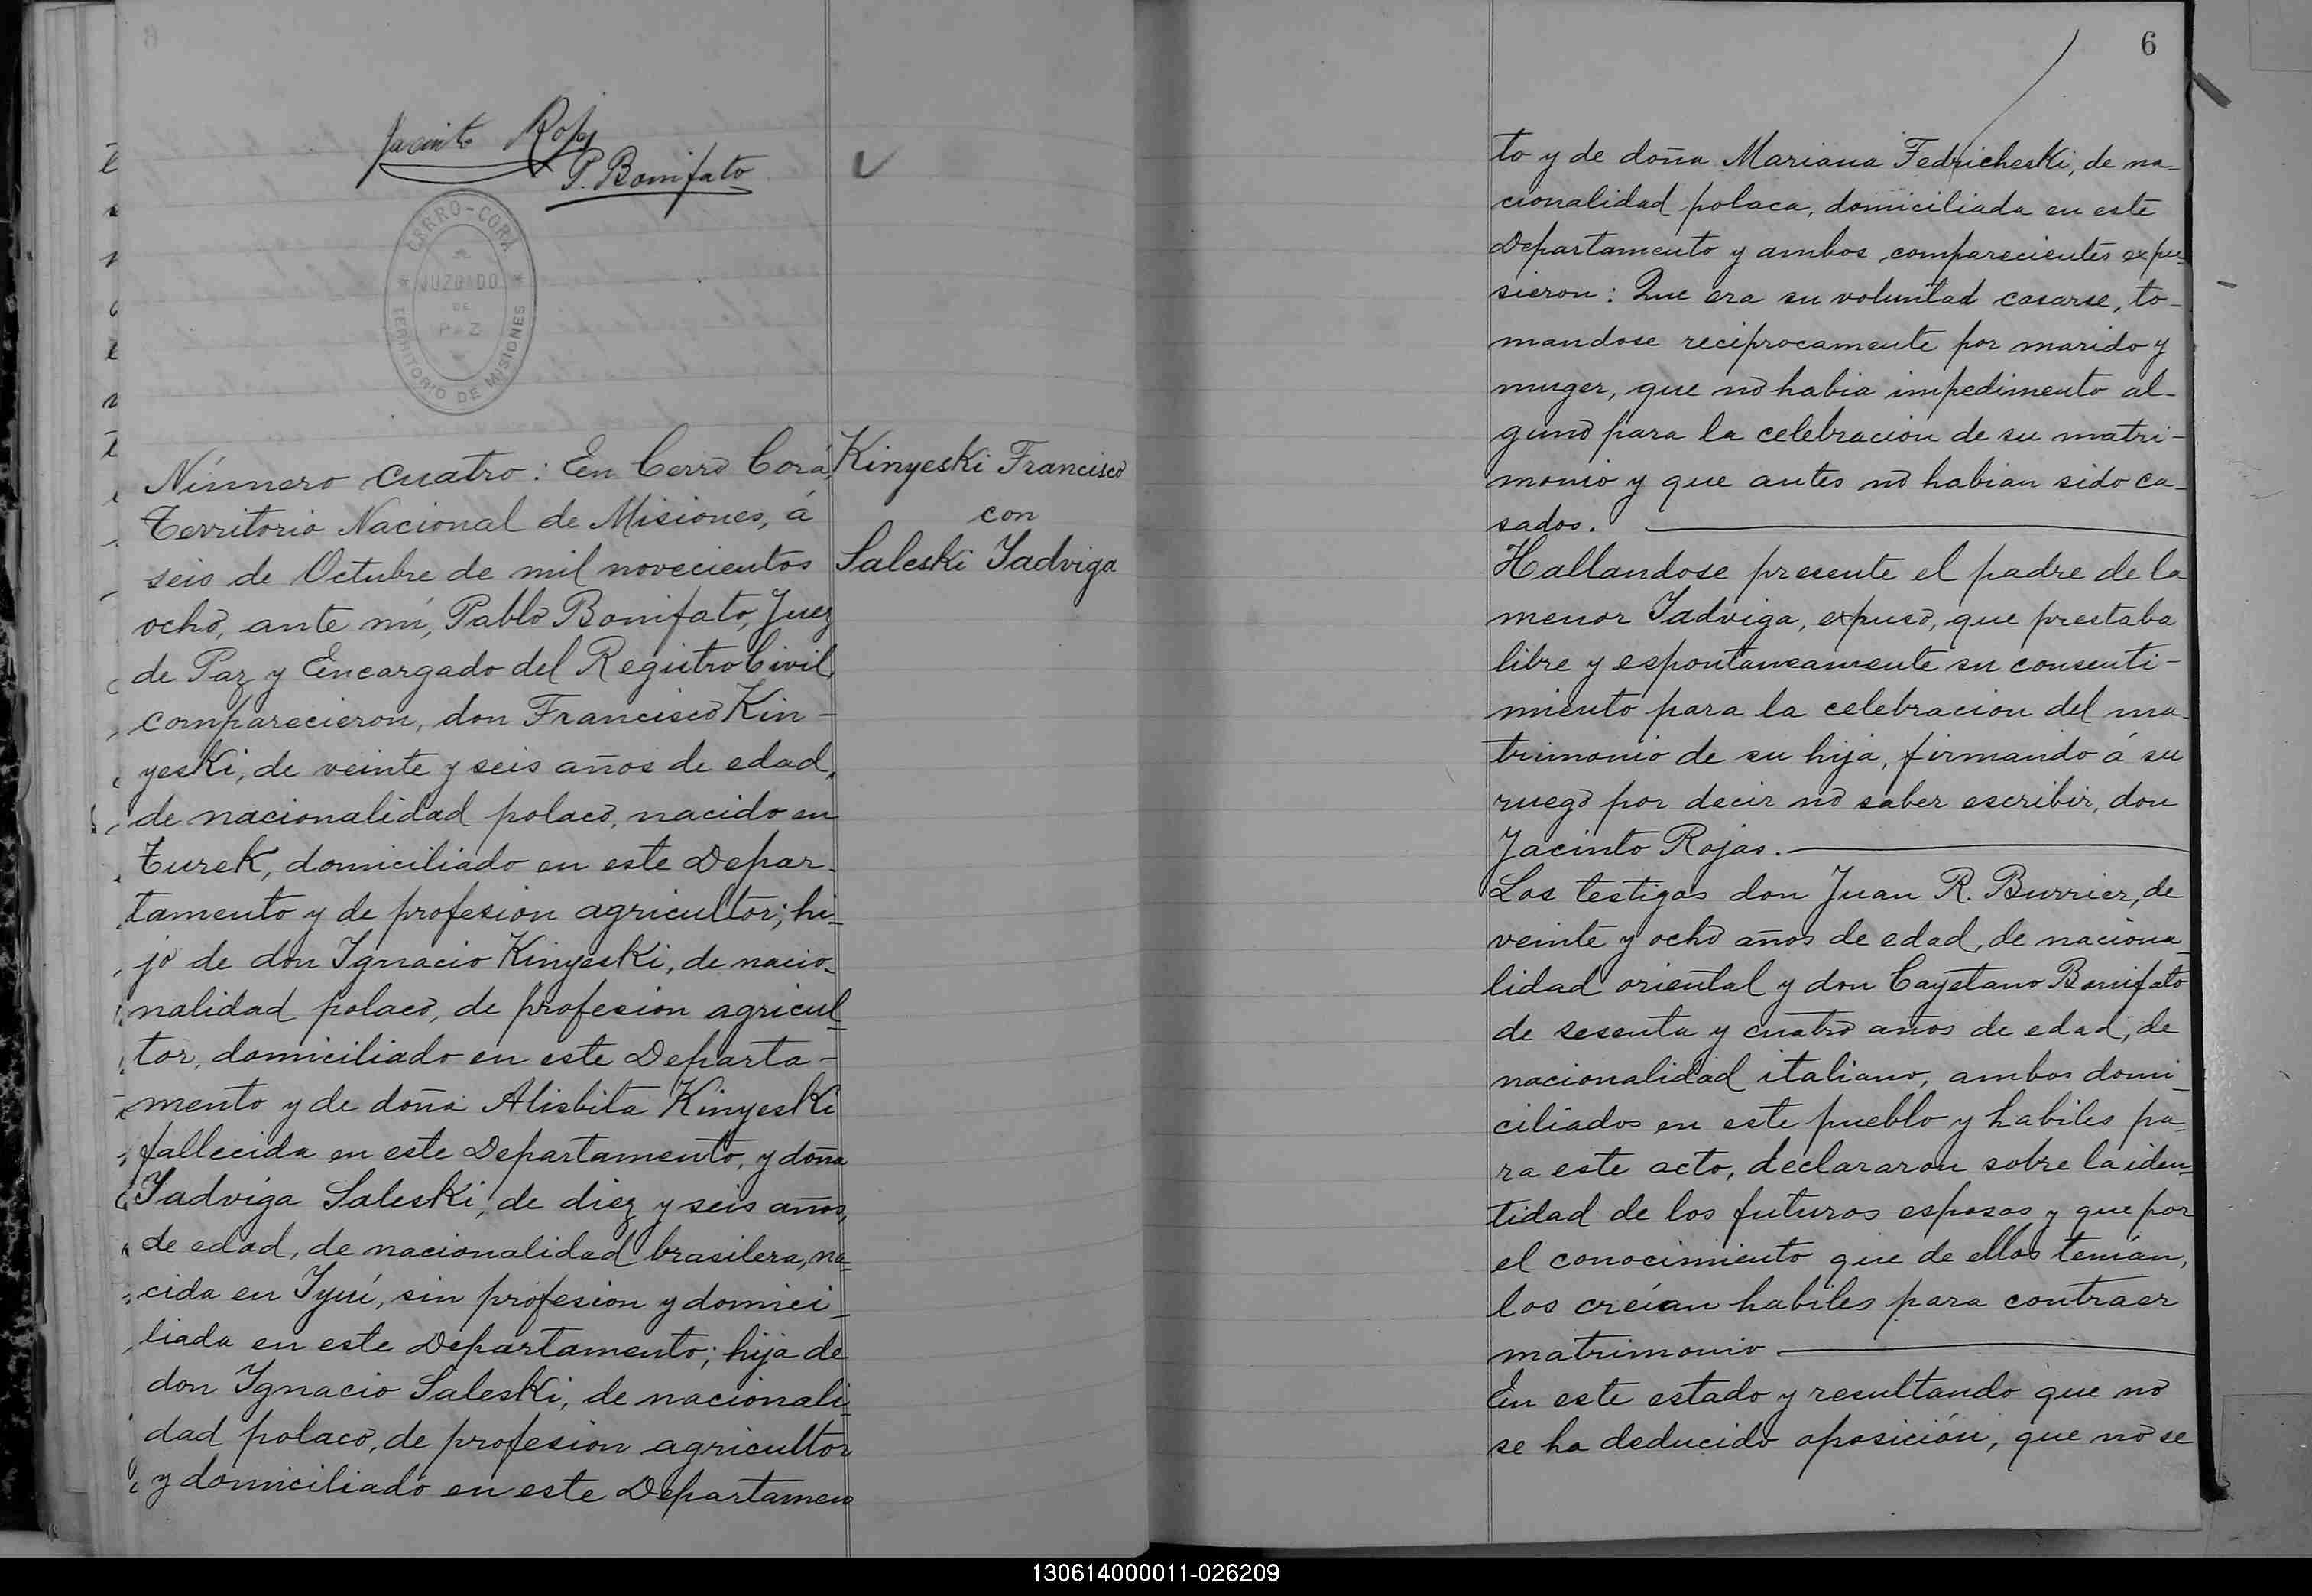 Jacinto Rojas
P. Bonifato
CERRO-CORÁ
JUZGADO
DE
PAZ
TERRITORIO DE MISIONES
Número cuatro: En Cerro Corá,
Territorio Nacional de Misiones, á
seis de Octubre de mil novecientos
ocho, ante mí, Pablo Bonifato, Juez
de Paz y Encargado del Registro Civil
comparecieron, don Francisco Kin-
yeski, de veinte y seis años de edad,
de nacionalidad polaco, nacido en
Turek, domiciliado en este Depar-
tamento y de profesion agricultor; hi-
jo de don Ygnacio Kinyeski, de nacio-
nalidad polaco, de profesion agricul-
tor, domiciliado en este Departa-
mento y de doña Alisbita Kinyeski
fallecida en este Departamento, y doña
Yadviga Saleski, de diez y seis años,
de edad, de nacionalidad brasilera, na-
cida en Yyuí, sin profesion y domici-
liada en este Departamento; hija de
don Ygnacio Saleski, de nacionali-
dad polaco, de profesion agricultor
y domiciliado en este Departamen
Kinyeski Francisco
con
Saleski Yadviga
6
to y de doña Mariana Fedricheski, de na-
cionalidad polaca, domiciliada en este
Departamento y ambos comparecientes expu-
sieron: Que era su voluntad casarse, to-
mandose reciprocamente por marido y
muger, que no habia impedimento al-
guno para la celebracion de su matri-
monio y que antes no habian sido ca-
sados.
Hallandose presente el padre de la
menor Yadviga, expuso, que prestaba
libre y espontaneamente su consenti-
miento para la celebracion del ma-
trimonio de su hija, firmando á su
ruego por decir no saber escribir, don
Jacinto Rojas.
Los testigos don Juan R. Burrier, de
veinte y ocho años de edad, de naciona-
lidad oriental y don Cayetano Bonifato
de sesenta y cuatro años de edad, de
nacionalidad italiano, ambos domi-
ciliados en este pueblo y habiles pa-
ra este acto, declararon sobre la iden-
tidad de los futuros esposos y que por
el conocimiento que de ellos tenían,
los creían habiles para contraer
matrimonio
En este estado y resultando que no
se ha deducido oposición, que no se
130614000011-026209